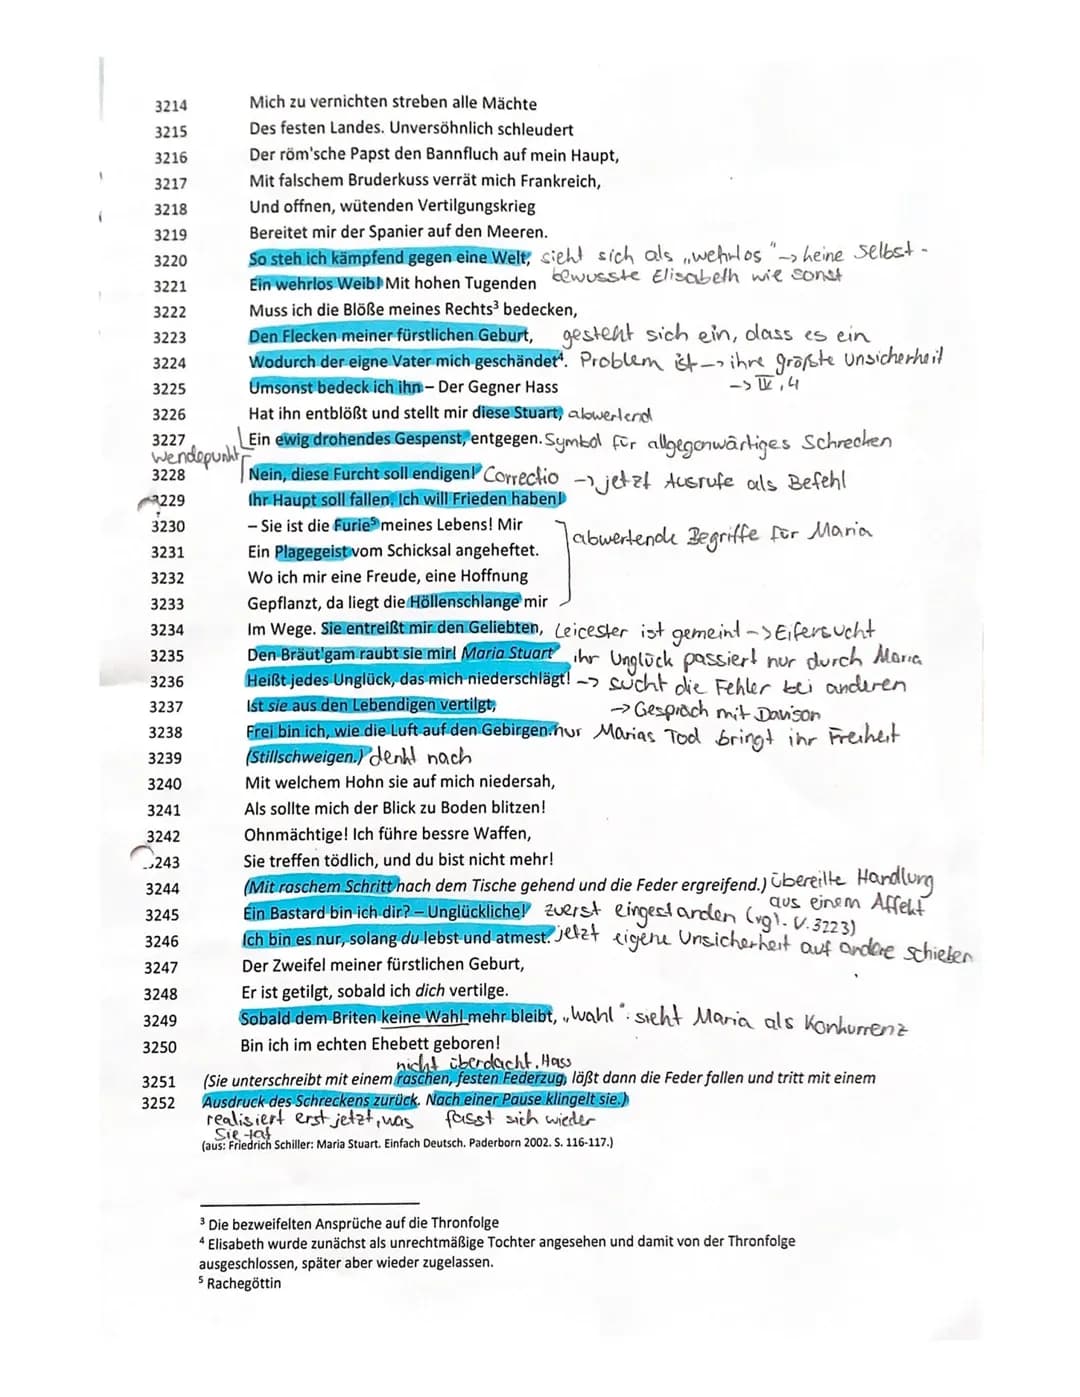 3214 Mich zu vernichten streben alle Mächte
3215 Des festen Landes. Unversöhnlich schleudert
3216 Der röm'sche Papst den Bannfluch auf mein Haupt,
3217 Mit falschem Bruderkuss verrät mich Frankreich,
3218 Und offnen, wütenden Vertilgungskrieg
3219 Bereitet mir der Spanier auf den Meeren.
3220 So steh ich kämpfend gegen eine Welt, sieht sich als „wehrlos" -> keine Selbst-
3221 Ein wehrlos Weib! Mit hohen Tugenden bewusste Elisabeth wie sonst
3222 Muss ich die Blöße meines Rechts³ bedecken,
3223 Den Flecken meiner fürstlichen Geburt, gesteht sich ein, dass es ein
3224 Wodurch der eigne Vater mich geschändet⁴. Problem ist -> ihre größte Unsicherheit
3225 Umsonst bedeck ich ihn – Der Gegner Hass -> IV, 4
3226 Hat ihn entblößt und stellt mir diese Stuart, abwertend
3227 Ein ewig drohendes Gespenst, entgegen. Symbol für allgegenwärtiges Schrecken
Wendepunkt
3228 Nein, diese Furcht soll endigen! Correctio -> jetzt Ausrufe als Befehl
3229 Ihr Haupt soll fallen. Ich will Frieden haben!
3230 – Sie ist die Furie⁵ meines Lebens! Mir
3231 Ein Plagegeist vom Schicksal angeheftet. abwertende Begriffe für Maria
3232 Wo ich mir eine Freude, eine Hoffnung
3233 Gepflanzt, da liegt die Höllenschlange mir
3234 Im Wege. Sie entreißt mir den Geliebten, Leicester ist gemeint -> Eifersucht
3235 Den Bräut'gam raubt sie mir! Maria Stuart ihr Unglück passiert nur durch Maria
3236 Heißt jedes Unglück, das mich niederschlägt! -> sucht die Fehler bei anderen
3237 Ist sie aus den Lebendigen vertilgt, -> Gespräch mit Davison
3238 Frei bin ich, wie die Luft auf den Gebirgen. nur Marias Tod bringt ihr Freiheit
3239 (Stillschweigen.) denkt nach
3240 Mit welchem Hohn sie auf mich niedersah,
3241 Als sollte mich der Blick zu Boden blitzen!
3242 Ohnmächtige! Ich führe bessre Waffen,
3243 Sie treffen tödlich, und du bist nicht mehr!
3244 (Mit raschem Schritt nach dem Tische gehend und die Feder ergreifend.) übereilte Handlung
aus einem Affekt
3245 Ein Bastard bin ich dir? – Unglückliche! zuerst eingestanden (vgl. V. 3223)
3246 Ich bin es nur, solang du lebst und atmest. jetzt eigene Unsicherheit auf andere schieben
3247 Der Zweifel meiner fürstlichen Geburt,
3248 Er ist getilgt, sobald ich dich vertilge.
3249 Sobald dem Briten keine Wahl mehr bleibt, „Wahl": sieht Maria als Konkurrenz
3250 Bin ich im echten Ehebett geboren!
nicht überdacht, Hass
3251 (Sie unterschreibt mit einem raschen, festen Federzug, läßt dann die Feder fallen und tritt mit einem
3252 Ausdruck des Schreckens zurück. Nach einer Pause klingelt sie.)
realisiert erst jetzt, was fasst sich wieder
Sie tat
(aus: Friedrich Schiller: Maria Stuart. Einfach Deutsch. Paderborn 2002. S. 116-117.)
³ Die bezweifelten Ansprüche auf die Thronfolge
⁴ Elisabeth wurde zunächst als unrechtmäßige Tochter angesehen und damit von der Thronfolge
ausgeschlossen, später aber wieder zugelassen.
⁵ Rachegöttin